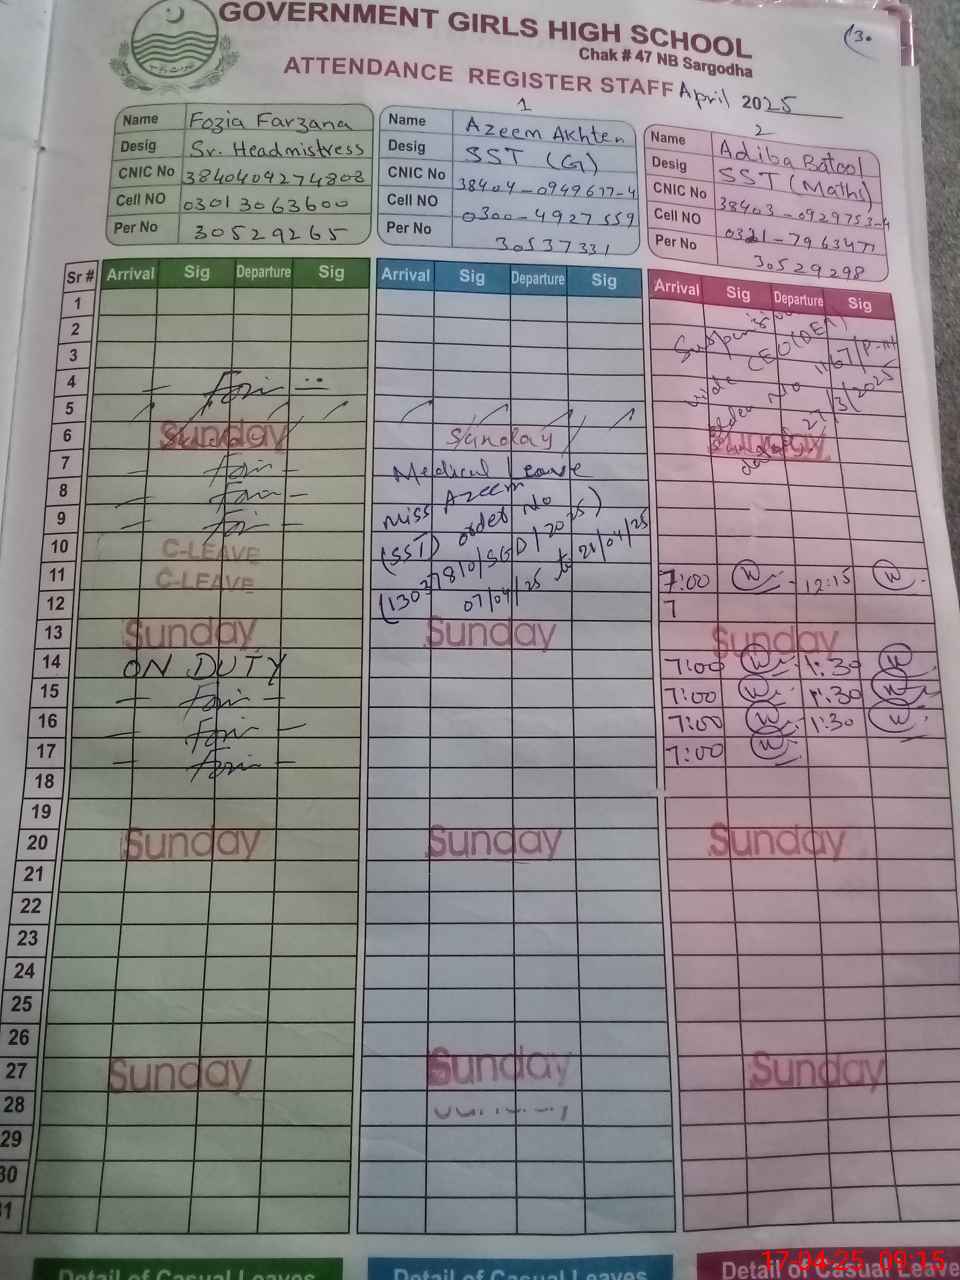 GOVERNMENT GIRLS HIGH SCHOOL
Chak # 47 NB Sargodha
ATTENDANCE REGISTER STAFF April 2025
Name Fozia Farzana
Desig Sr. Headmistress
CNIC No 3840409274808
Cell NO 03013063600
Per No 30529265
1
Name Azeem Akhter
Desig SST (G)
CNIC No 38404-0949677-4
Cell NO 0300-4927559
Per No 30537331
2
Name Adiba Batool
Desig SST (Maths)
CNIC No 38403-0929753-4
Cell NO 0321-7963477
Per No 30529298
Sr # Arrival Sig Departure Sig Arrival Sig Departure Sig Arrival Sig Departure Sig
1
2
3
4
5
6 Sunday Sunday Sunday
7 Medical Leave
8 Miss Azeem
9 (SST) order No
10 C-LEAVE
11 C-LEAVE 07/04/25 to 21/04/25 7:00 12:15
12 7
13 Sunday Sunday Sunday
14 ON DUTY 7:00 1:30
15 7:00 1:30
16 7:00 1:30
17 7:00
18
19
20 Sunday Sunday Sunday
21
22
23
24
25
26
27 Sunday Sunday Sunday
28
29
30
31
Detail of Casual Leaves Detail of Casual Leaves Detail of Casual Leave
17-04-25 09:15